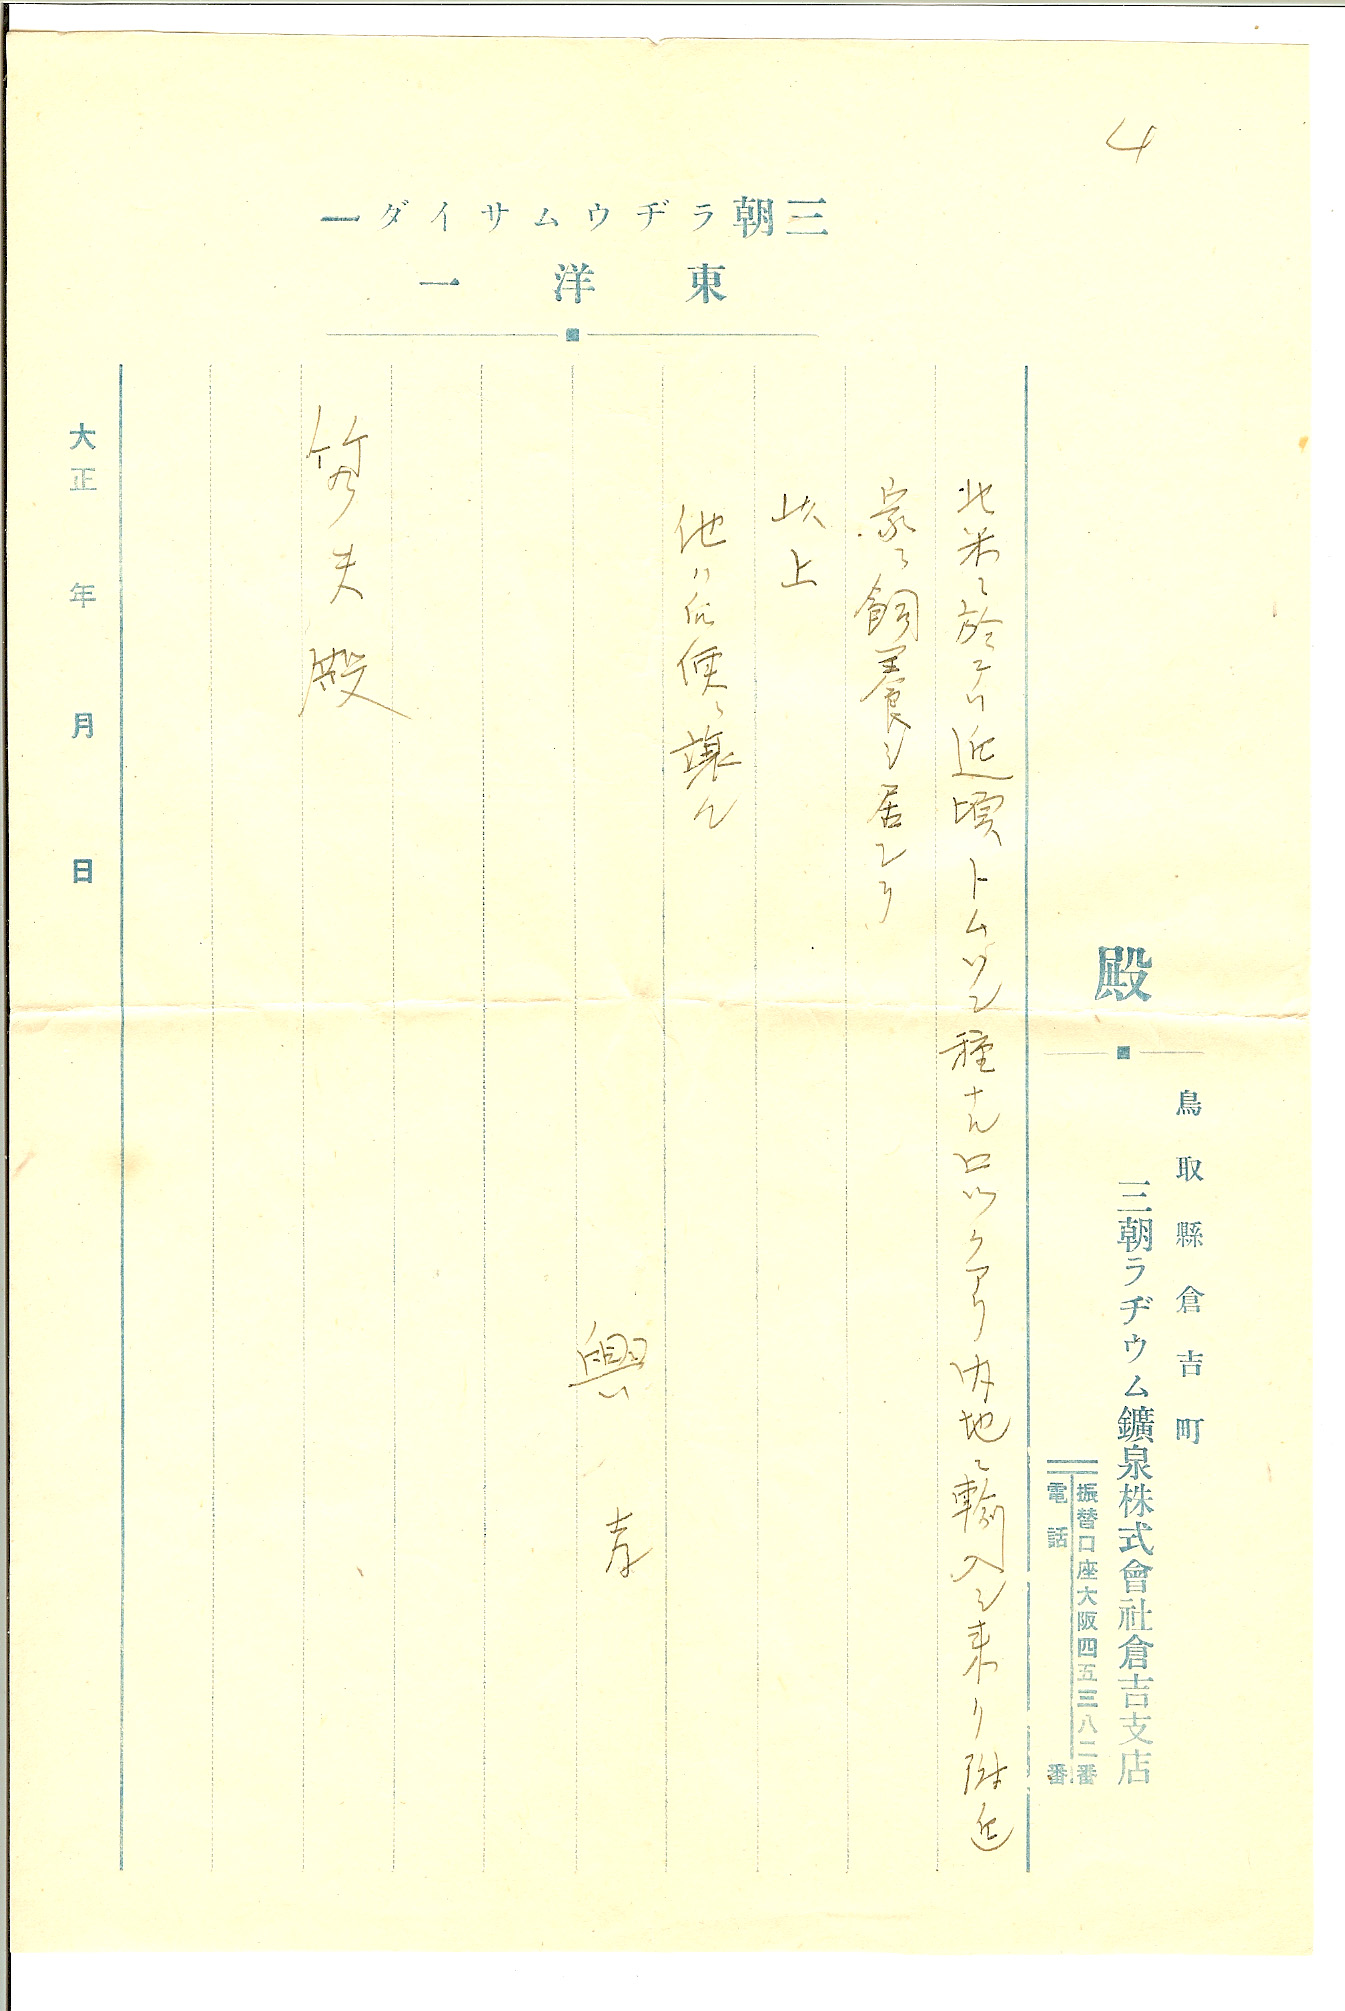 4
三朝ラヂウムサイダー
東洋一
鳥取縣倉吉町
三朝ラヂウム鑛泉株式會社倉吉支店
振替口座大阪四五三八二番
電話 番
殿
北米ニ於テハ近頃トムソン種ナルロックアリ内地ニ輸入シ来リ附近
家ニ飼養シ居レリ
以上
他ハ後便ニ譲ル
興孝
夫殿
大正 年 月 日